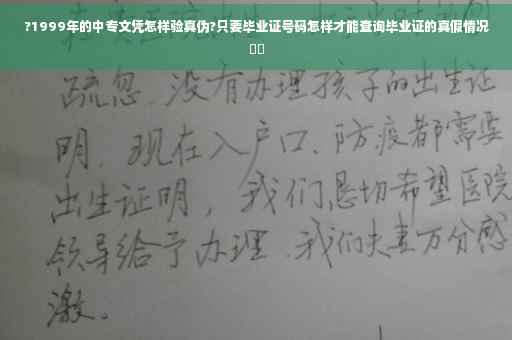 ?1999年的中专文凭怎样验真伪?只要毕业证号码怎样才能查询毕业证的真假情况
疏忽.没有办理孩子的出生证
明.现在入户口、防疫都需要
出生证明，我们恳切希望医院
领导给予办理.我们夫妻万分感
激.